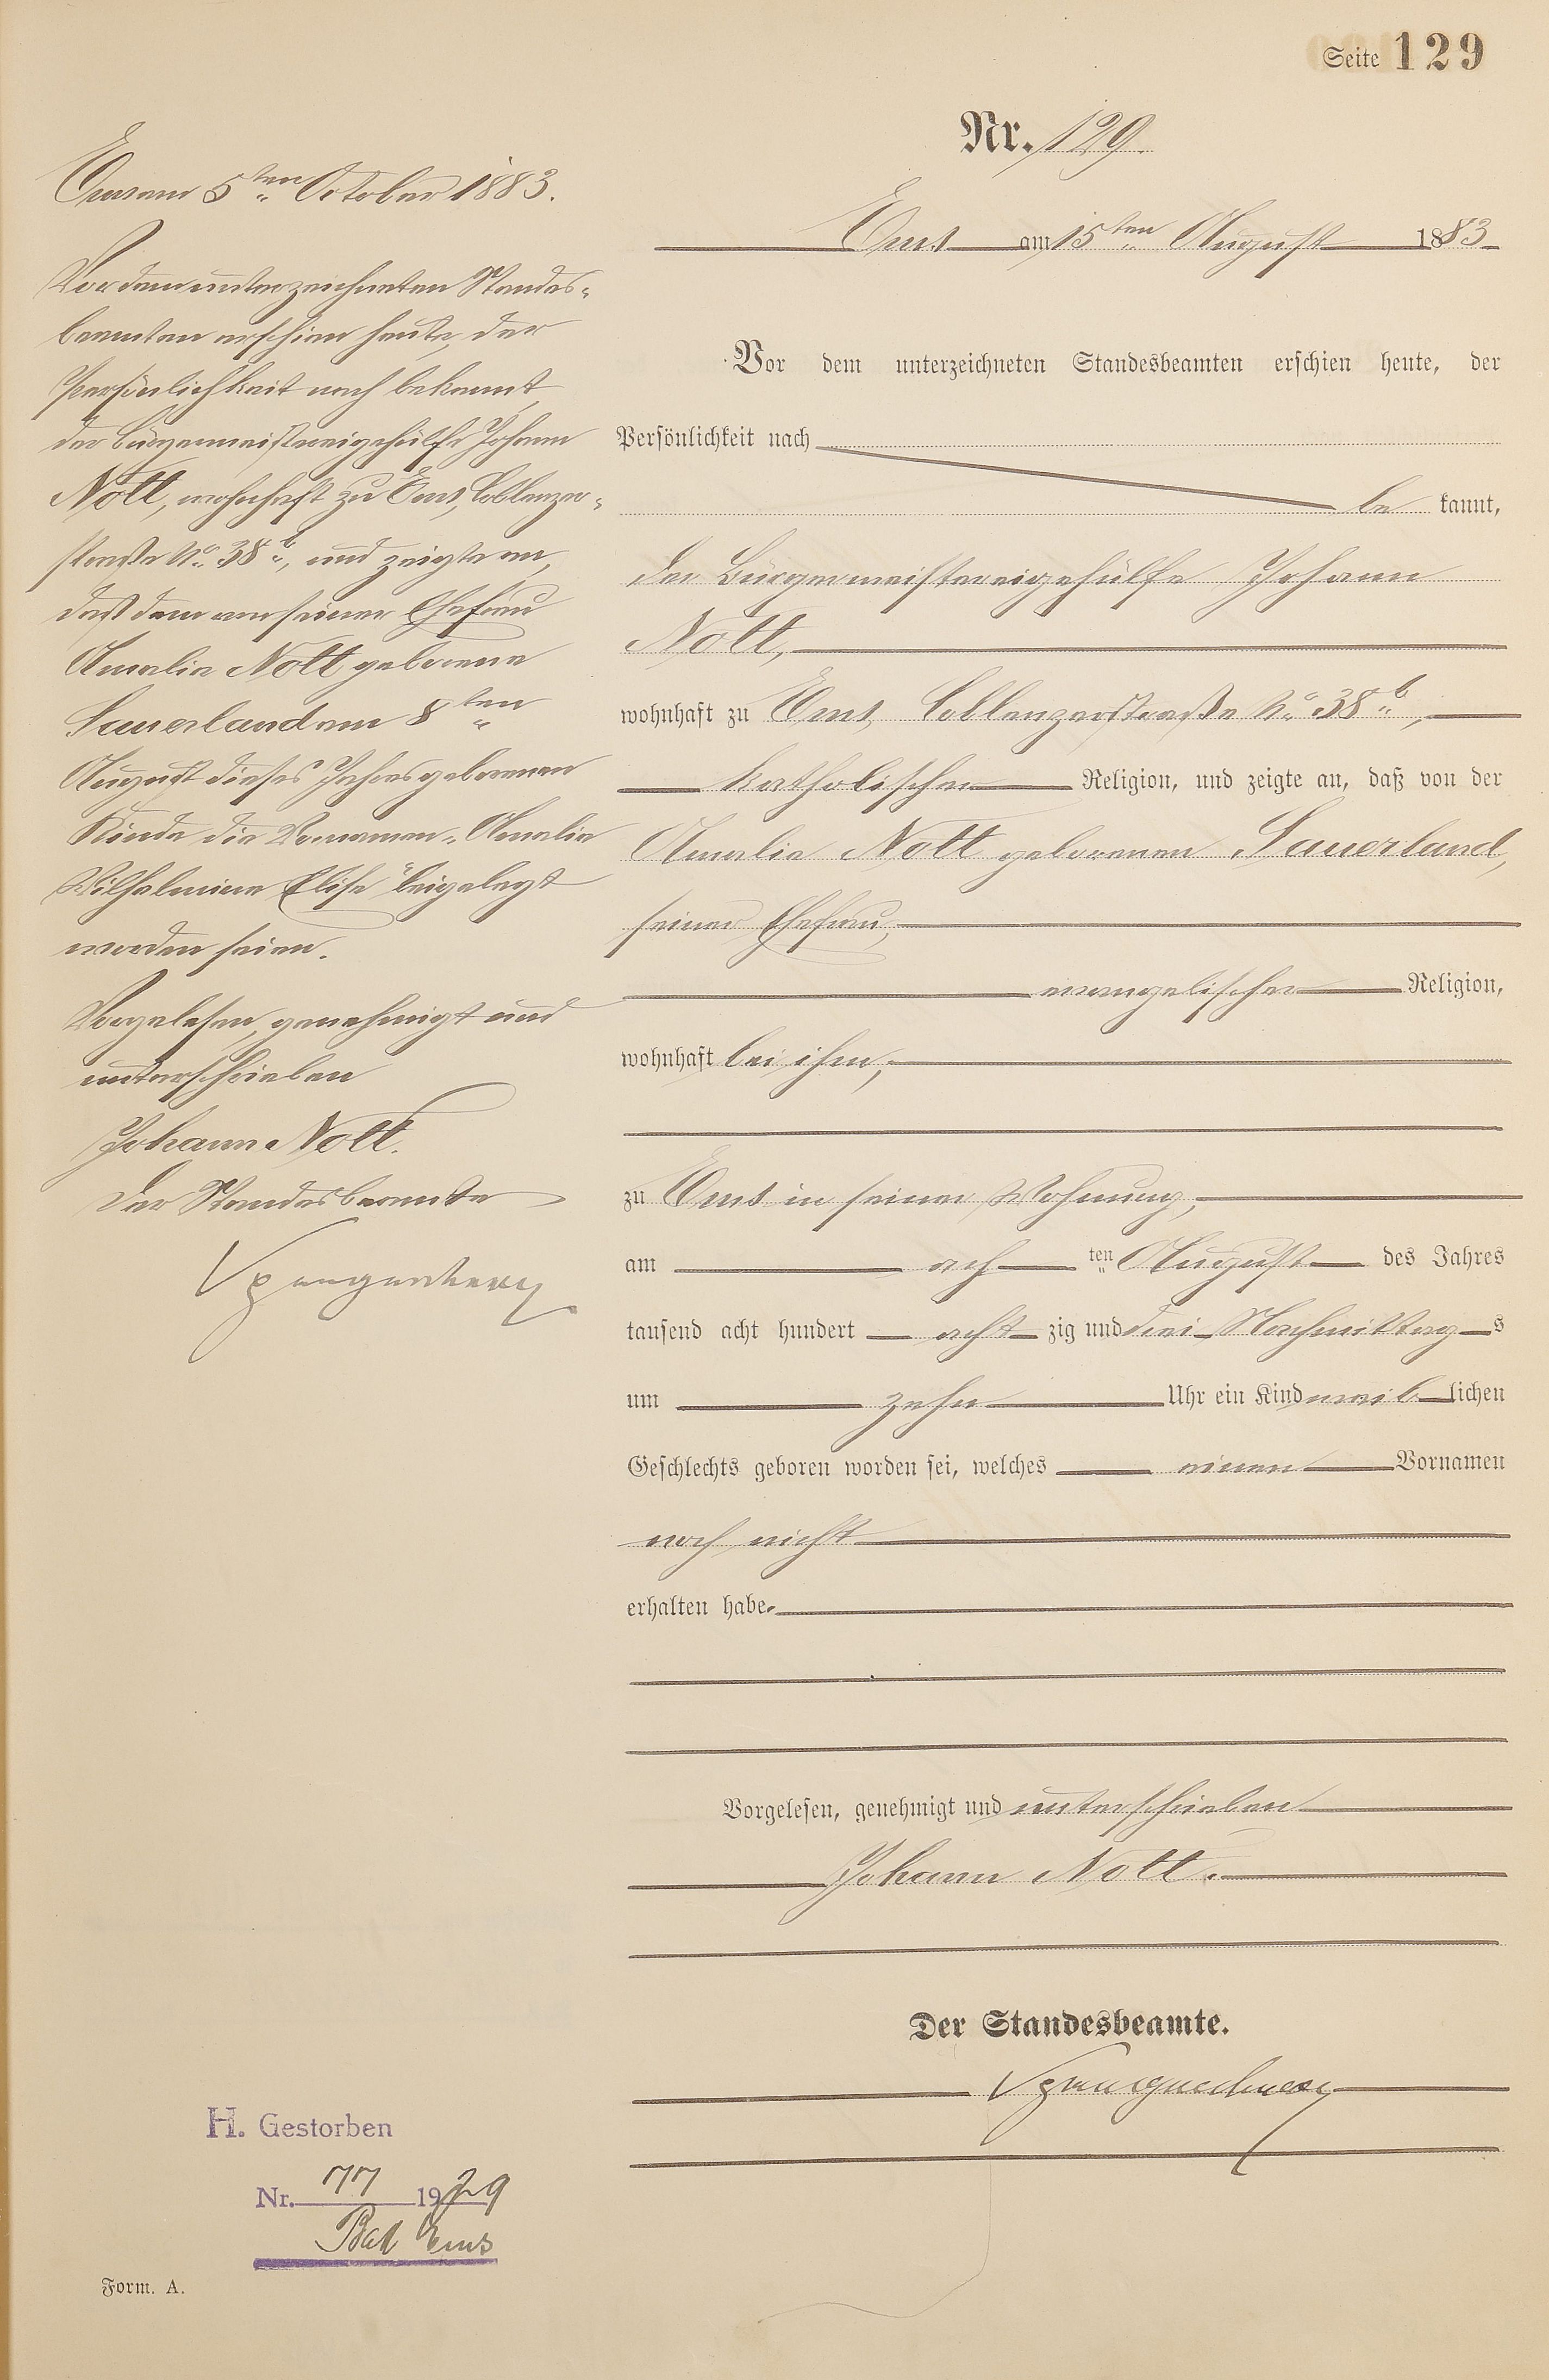 Seite 129
Nr. 129.
Ems am 15ten August 1883
Vor dem unterzeichneten Standesbeamten erschien heute, der
Persönlichkeit nach
be kannt,
der Bürgermeistereigehülfe Johann
Nott,
wohnhaft zu Ems, Coblenzerstraße No. 38b,
katholischer Religion, und zeigte an, daß von der
Amalie Nott geborenen Sauerland,
seiner Ehefrau,
evangelischer Religion,
wohnhaft bei ihm,
zu Ems in seiner Wohnung,
am ach ten August des Jahres
tausend acht hundert acht zig und drei Nachmittag s
um zehn Uhr ein Kind weib lichen
Geschlechts geboren worden sei, welches einen Vornamen
noch nicht
erhalten habe.
Vorgelesen, genehmigt und unterschrieben
Johann Nott.
Der Standesbeamte.
Spangenberg
Ems am 5ten October 1883.
Vor dem unterzeichneten Standes-
beamten erschien heute, der
Persönlichkeit nach bekannt,
der Bürgermeistereigehülfe Johann
Nott, wohnhaft zu Ems, Coblenzer-
straße No. 38b, und zeigte an,
daß dem von seiner Ehefrau
Amalie Nott geborene
Sauerland am 8ten
August dieses Jahres geborenen
Kinde die Vornamen „Amalie
Wilhelmine Elise" beigelegt
worden seien.
Vorgelesen, genehmigt und
unterschrieben
Johann Nott.
Der Standesbeamte
Spangenberg
H. Gestorben
Nr. 77 1929
Bad Ems
Form. A.